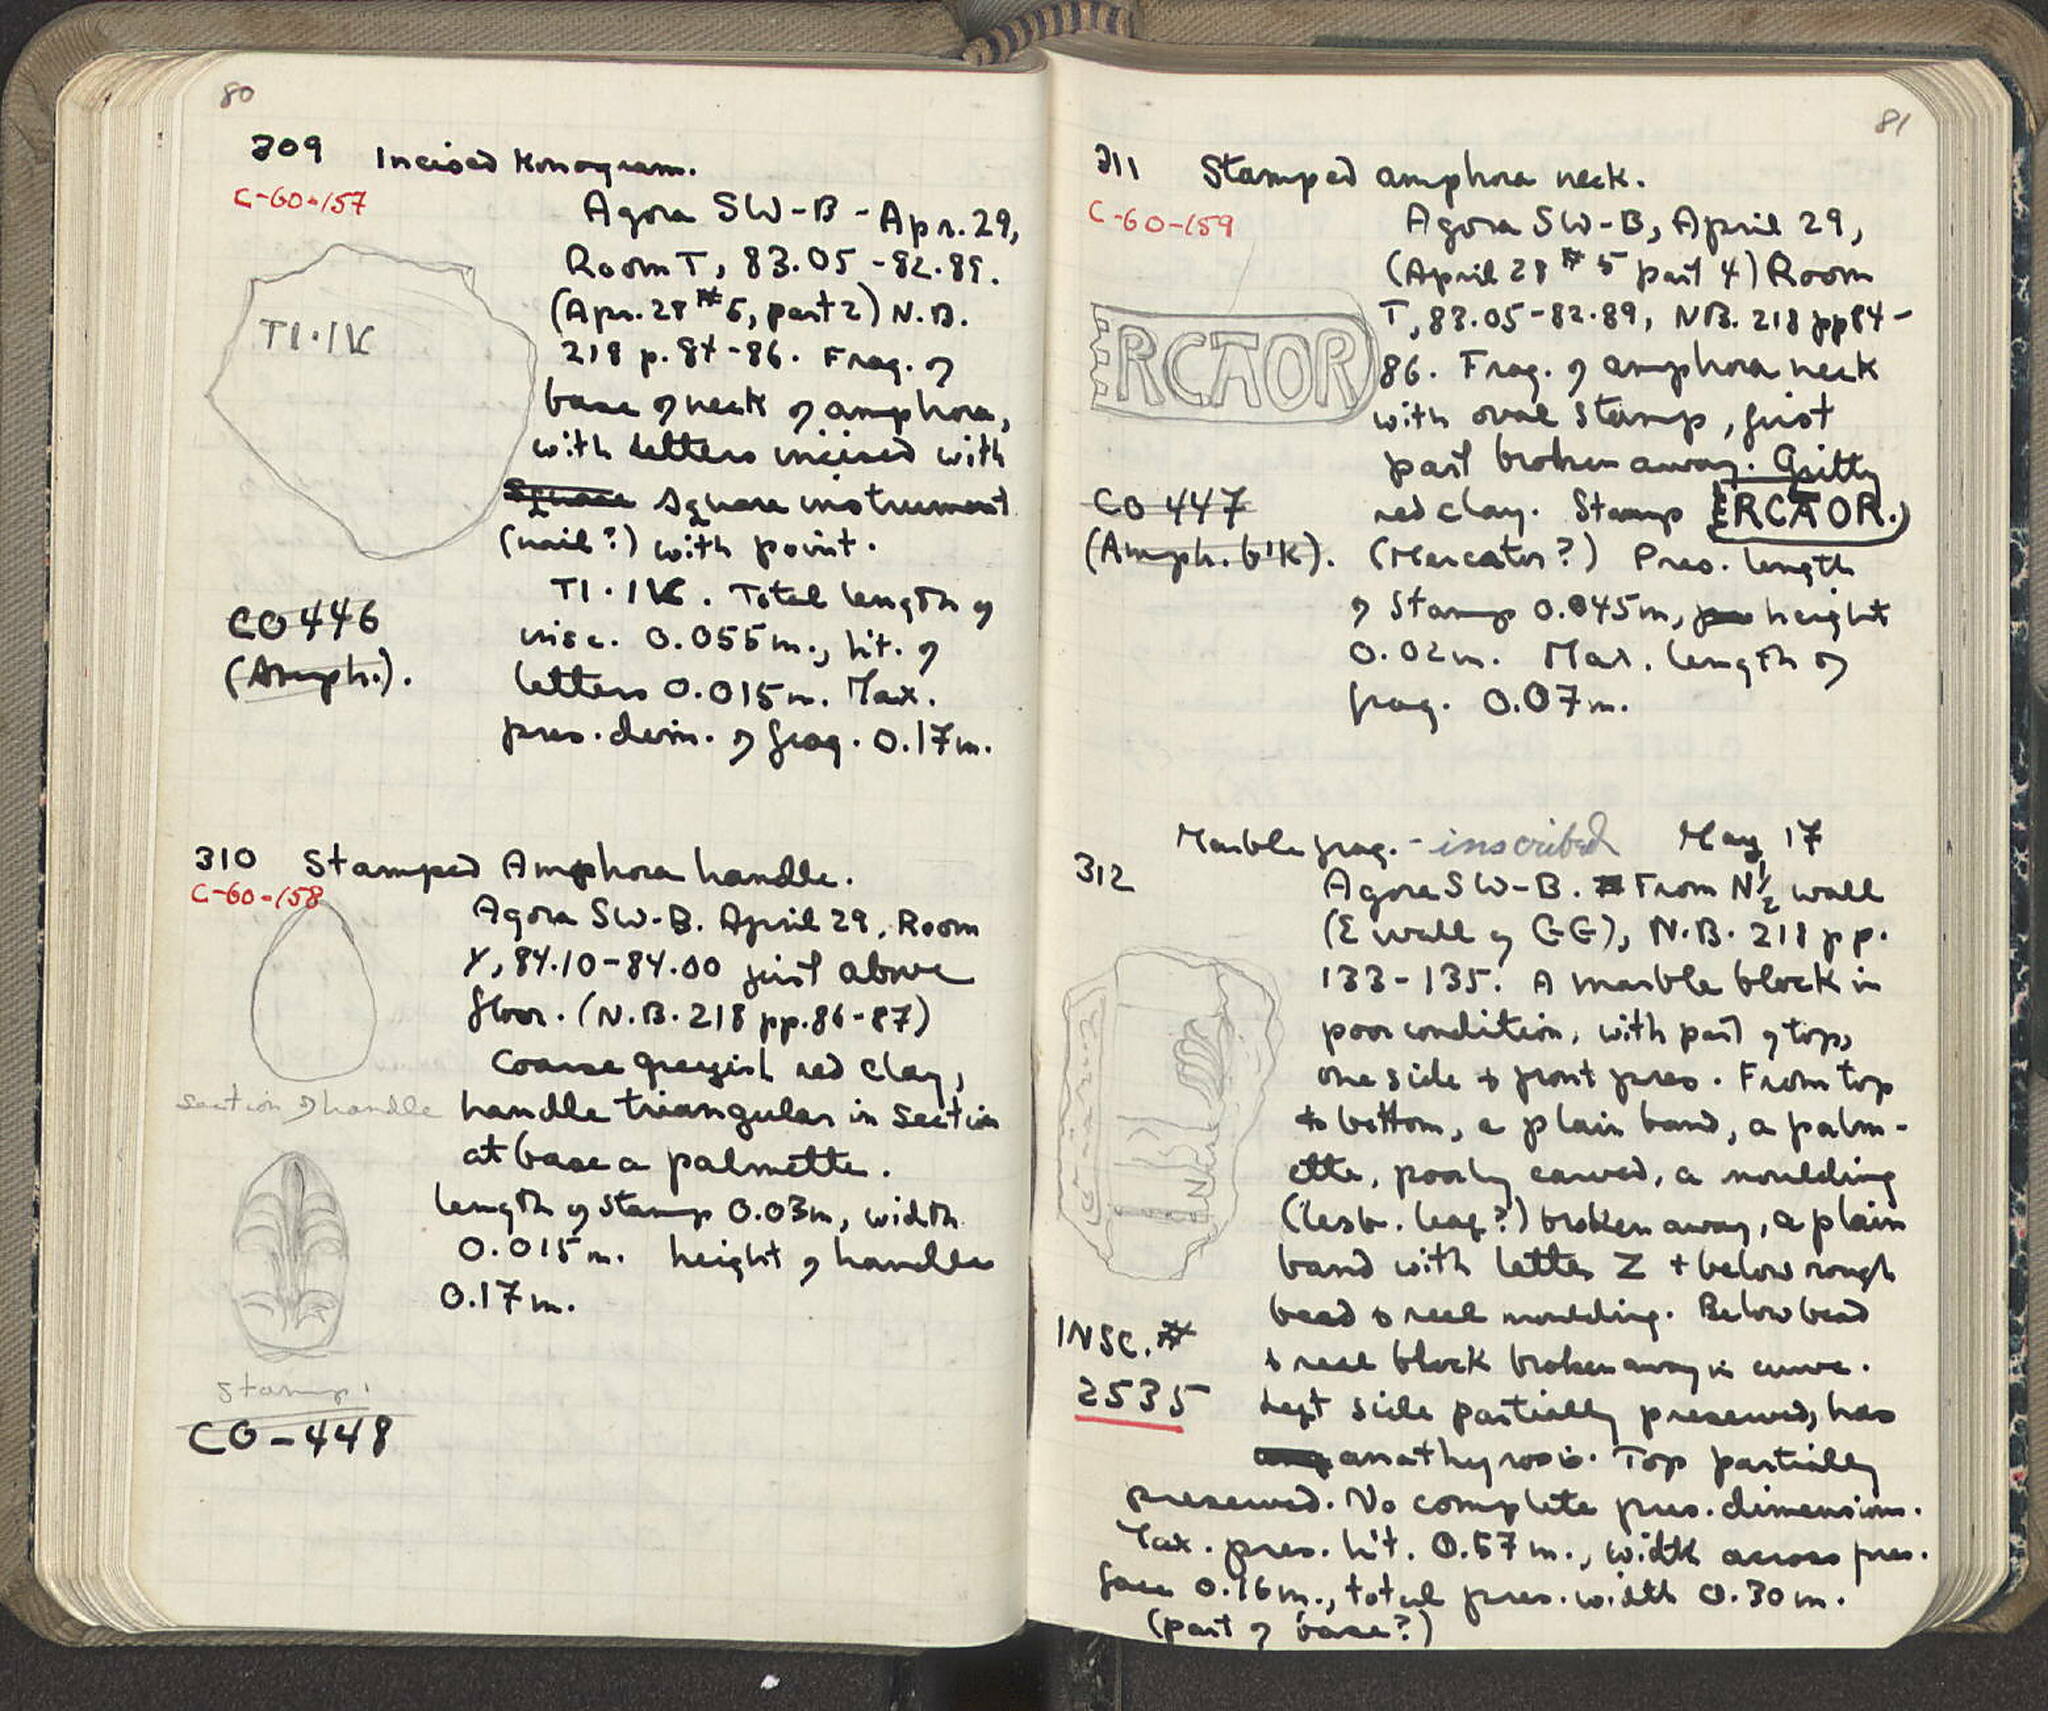 80
309 Incised Monogram.
C-60-157
Agora SW-B - Apr. 29,
Room T, 83.05-82.89.
(Apr. 28 #5, part 2) N.B.
218 p. 84-86. Frag. of
base of neck of amphora,
with letters incised with
square instrument
(nail?) with point.
TI·IK
TI·IK. Total length of
insc. 0.055m., ht. of
letters 0.015m. Max.
pres. dim. of frag. 0.17m.
CO 446
(Amph.).
310 Stamped Amphora handle.
C-60-158
Agora SW-B. April 29, Room
Y, 84.10-84.00 just above
floor. (N.B. 218 pp. 86-87)
Coarse greyish red clay,
handle triangular in section
at base a palmette.
length of stamp 0.03m, width
0.015m. height of handle
0.17m.
section of handle
stamp
CO-448
81
311 Stamped amphora neck.
C-60-159
Agora SW-B, April 29,
(April 28 #5 part 4) Room
T, 83.05-82.89, NB. 218 pp 84-
86. Frag. of amphora neck
with oval stamp, first
part broken away. Gritty
red clay. Stamp ERCATOR.)
(Mercator?) Pres. length
of stamp 0.045m, height
0.02m. Max. length of
frag. 0.07m.
ERCATOR
CO 447
(Amph. b'k).
Marble frag. - inscribed May 17
312
Agora SW-B. From N½ wall
(E wall of GG), N.B. 218 pp.
133-135. A marble block in
poor condition, with part of top,
one side + front pres. From top
to bottom, a plain band, a palm-
ette, poorly carved, a moulding
(lesb. leaf?) broken away, a plain
band with letter Z + below rough
bead & reel moulding. Below bead
& reel block broken away in curve.
Left side partially preserved, has
anathyrosis. Top partially
preserved. No complete pres. dimensions.
Max. pres. ht. 0.57m., width across pres.
face 0.16m., total pres. width 0.30m.
(part of base?)
INSC. #
2535